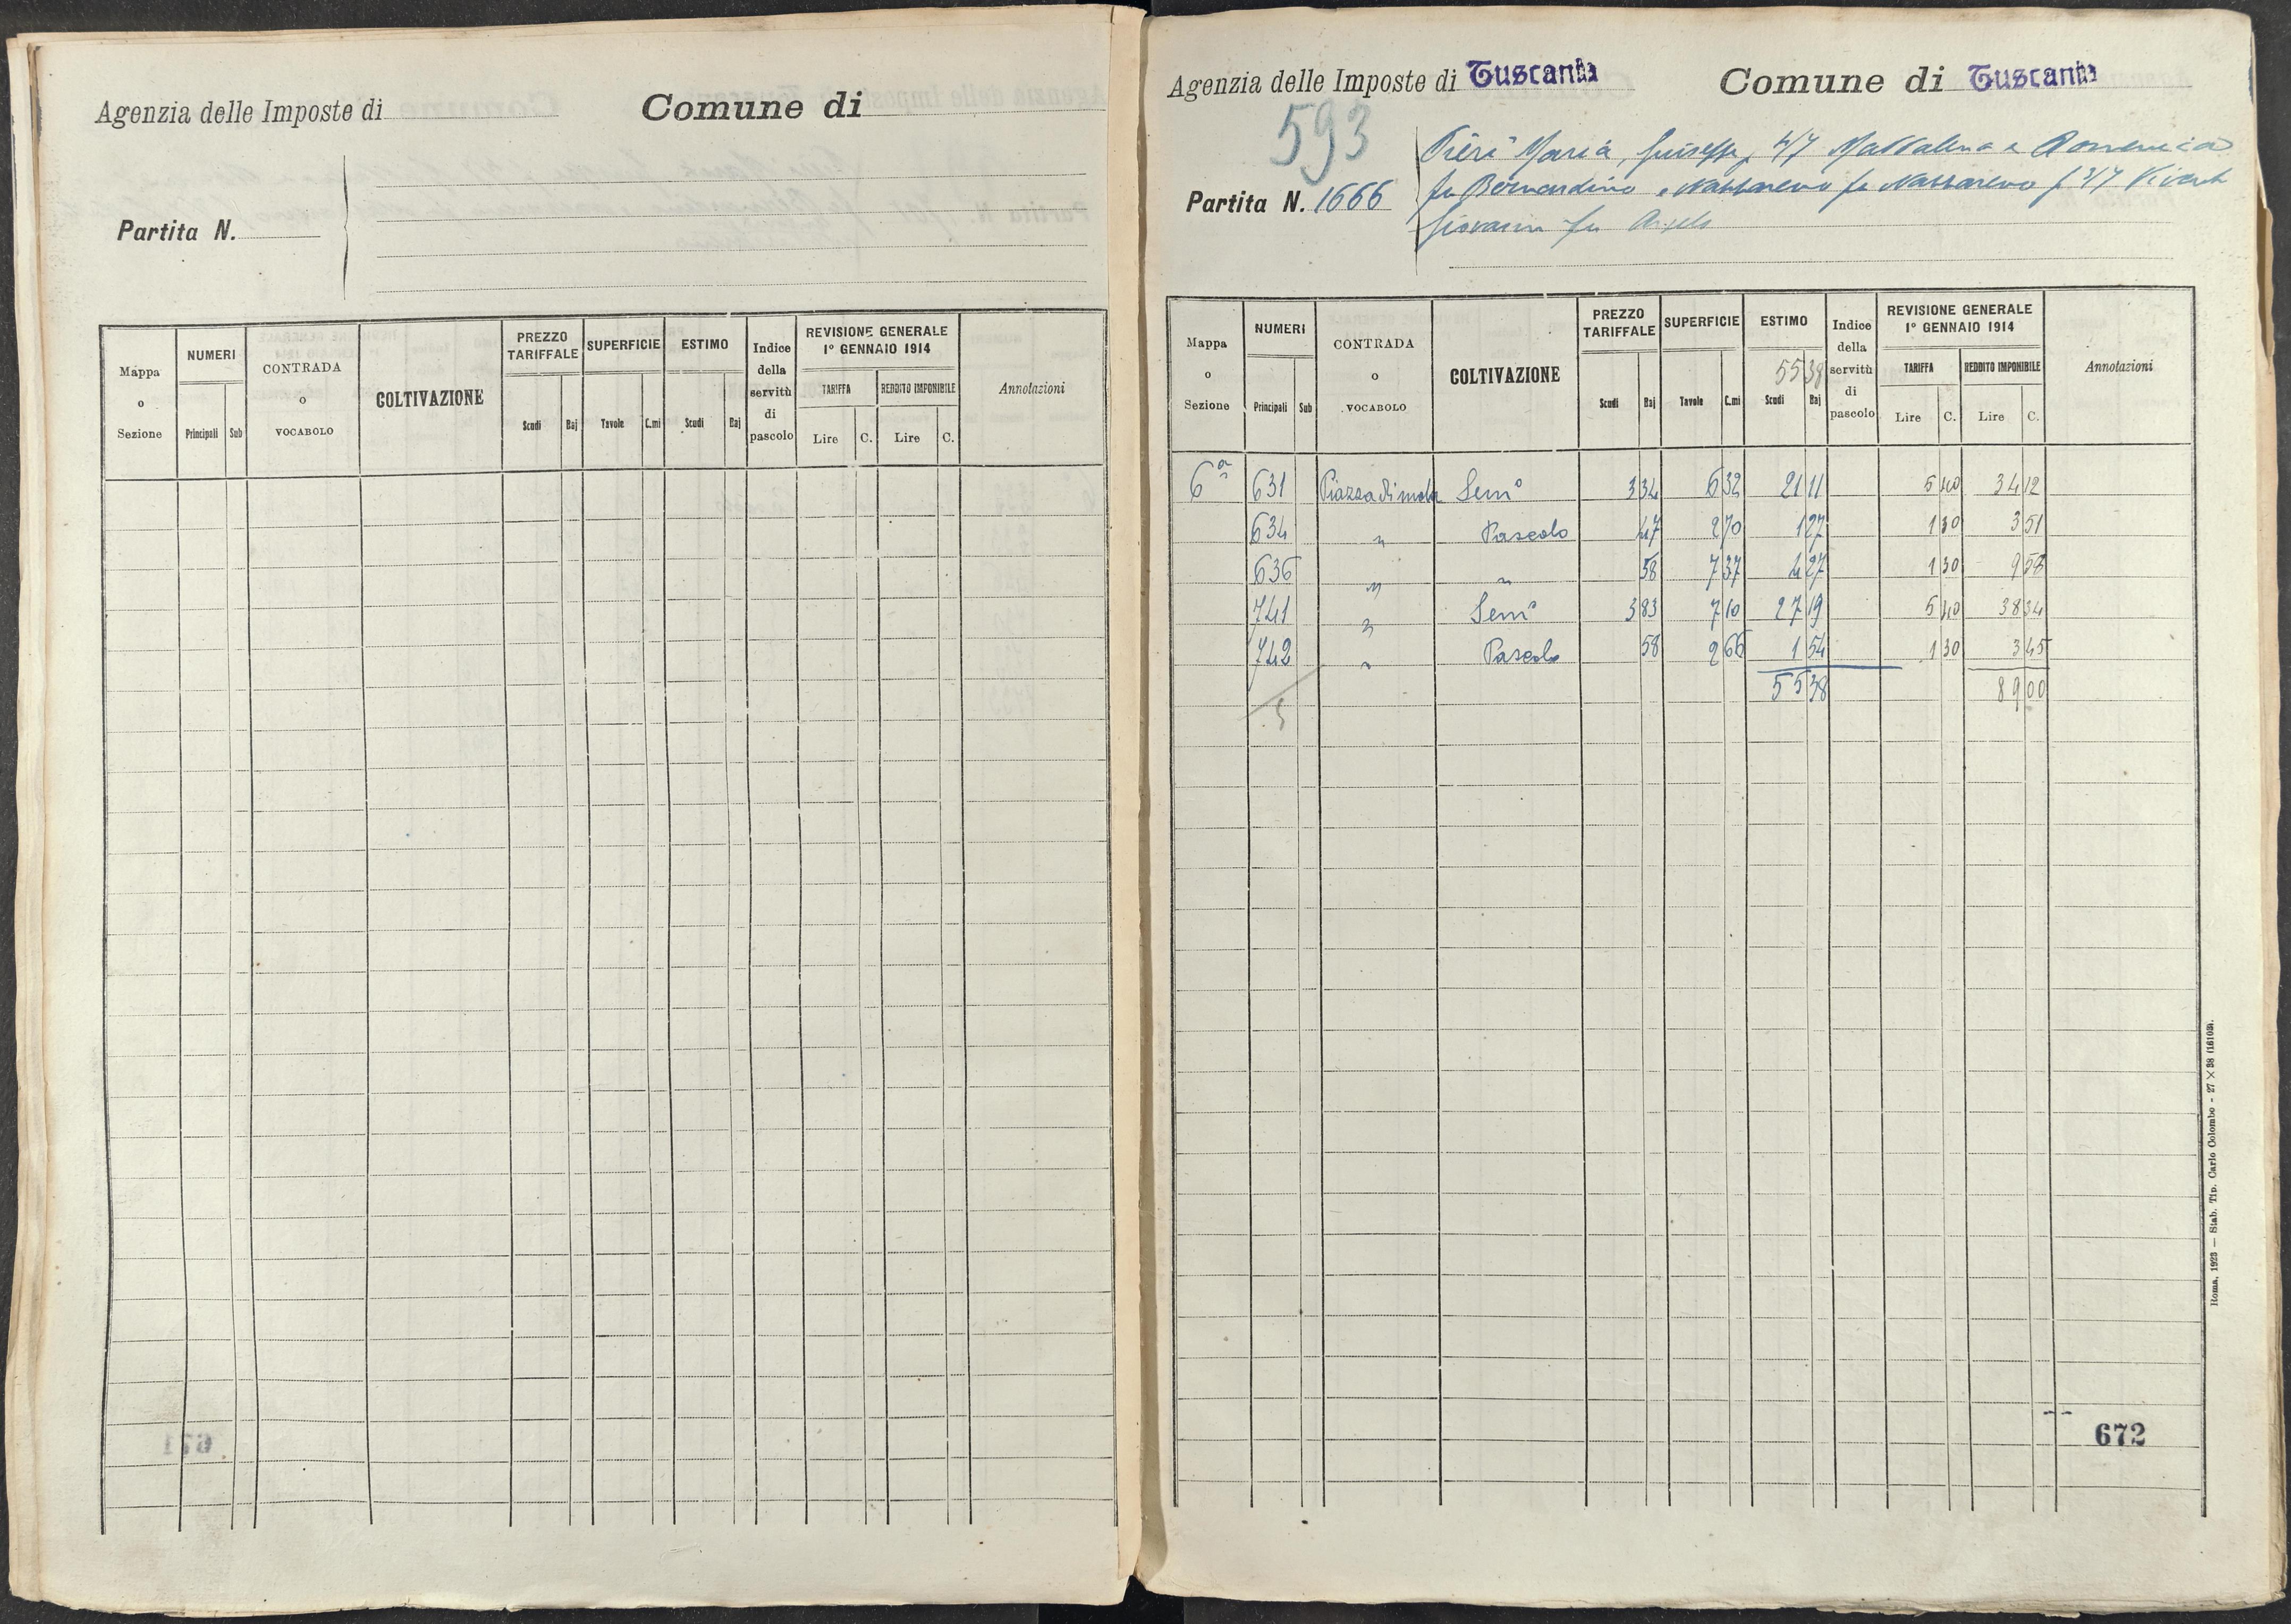 Agenzia delle Imposte di
Comune di
Partita N.
Mappa o Sezione
NUMERI
Principali
Sub
CONTRADA o VOCABOLO
COLTIVAZIONE
PREZZO TARIFFALE
Scudi
Baj
SUPERFICIE
Tavole
C.mi
ESTIMO
Scudi
Baj
Indice della servitù di pascolo
REVISIONE GENERALE
1° GENNAIO 1914
TARIFFA
REDDITO IMPONIBILE
Lire
C.
Lire
C.
Annotazioni
671
Agenzia delle Imposte di Tuscania
Comune di Tuscania
593
Partita N. 1666
Pieri Maria, Giuseppe, 4/7 Maddalena e Domenica
fu Bernardino e Nazzareno fu Nazzareno 3/7
Giovanni fu Angelo
Mappa o Sezione
NUMERI
Principali
Sub
CONTRADA o VOCABOLO
COLTIVAZIONE
PREZZO TARIFFALE
Scudi
Baj
SUPERFICIE
Tavole
C.mi
ESTIMO
5538
Scudi
Baj
Indice della servitù di pascolo
REVISIONE GENERALE
1° GENNAIO 1914
TARIFFA
REDDITO IMPONIBILE
Lire
C.
Lire
C.
Annotazioni
6a 631 Piazza di mola Semo 3 34 6 32 21 11 5 40 34 12
634 " Pascolo 47 2 70 1 27 1 30 3 51
636 " " 58 7 37 4 27 1 30 9 58
741 " Semo 3 83 7 10 27 19 5 40 38 34
742 " Pascolo 58 2 66 1 54 1 30 3 45
5 55 38 89 00
672
Roma, 1923 — Stab. Tip. Carlo Colombo - 27 × 38 (16103).